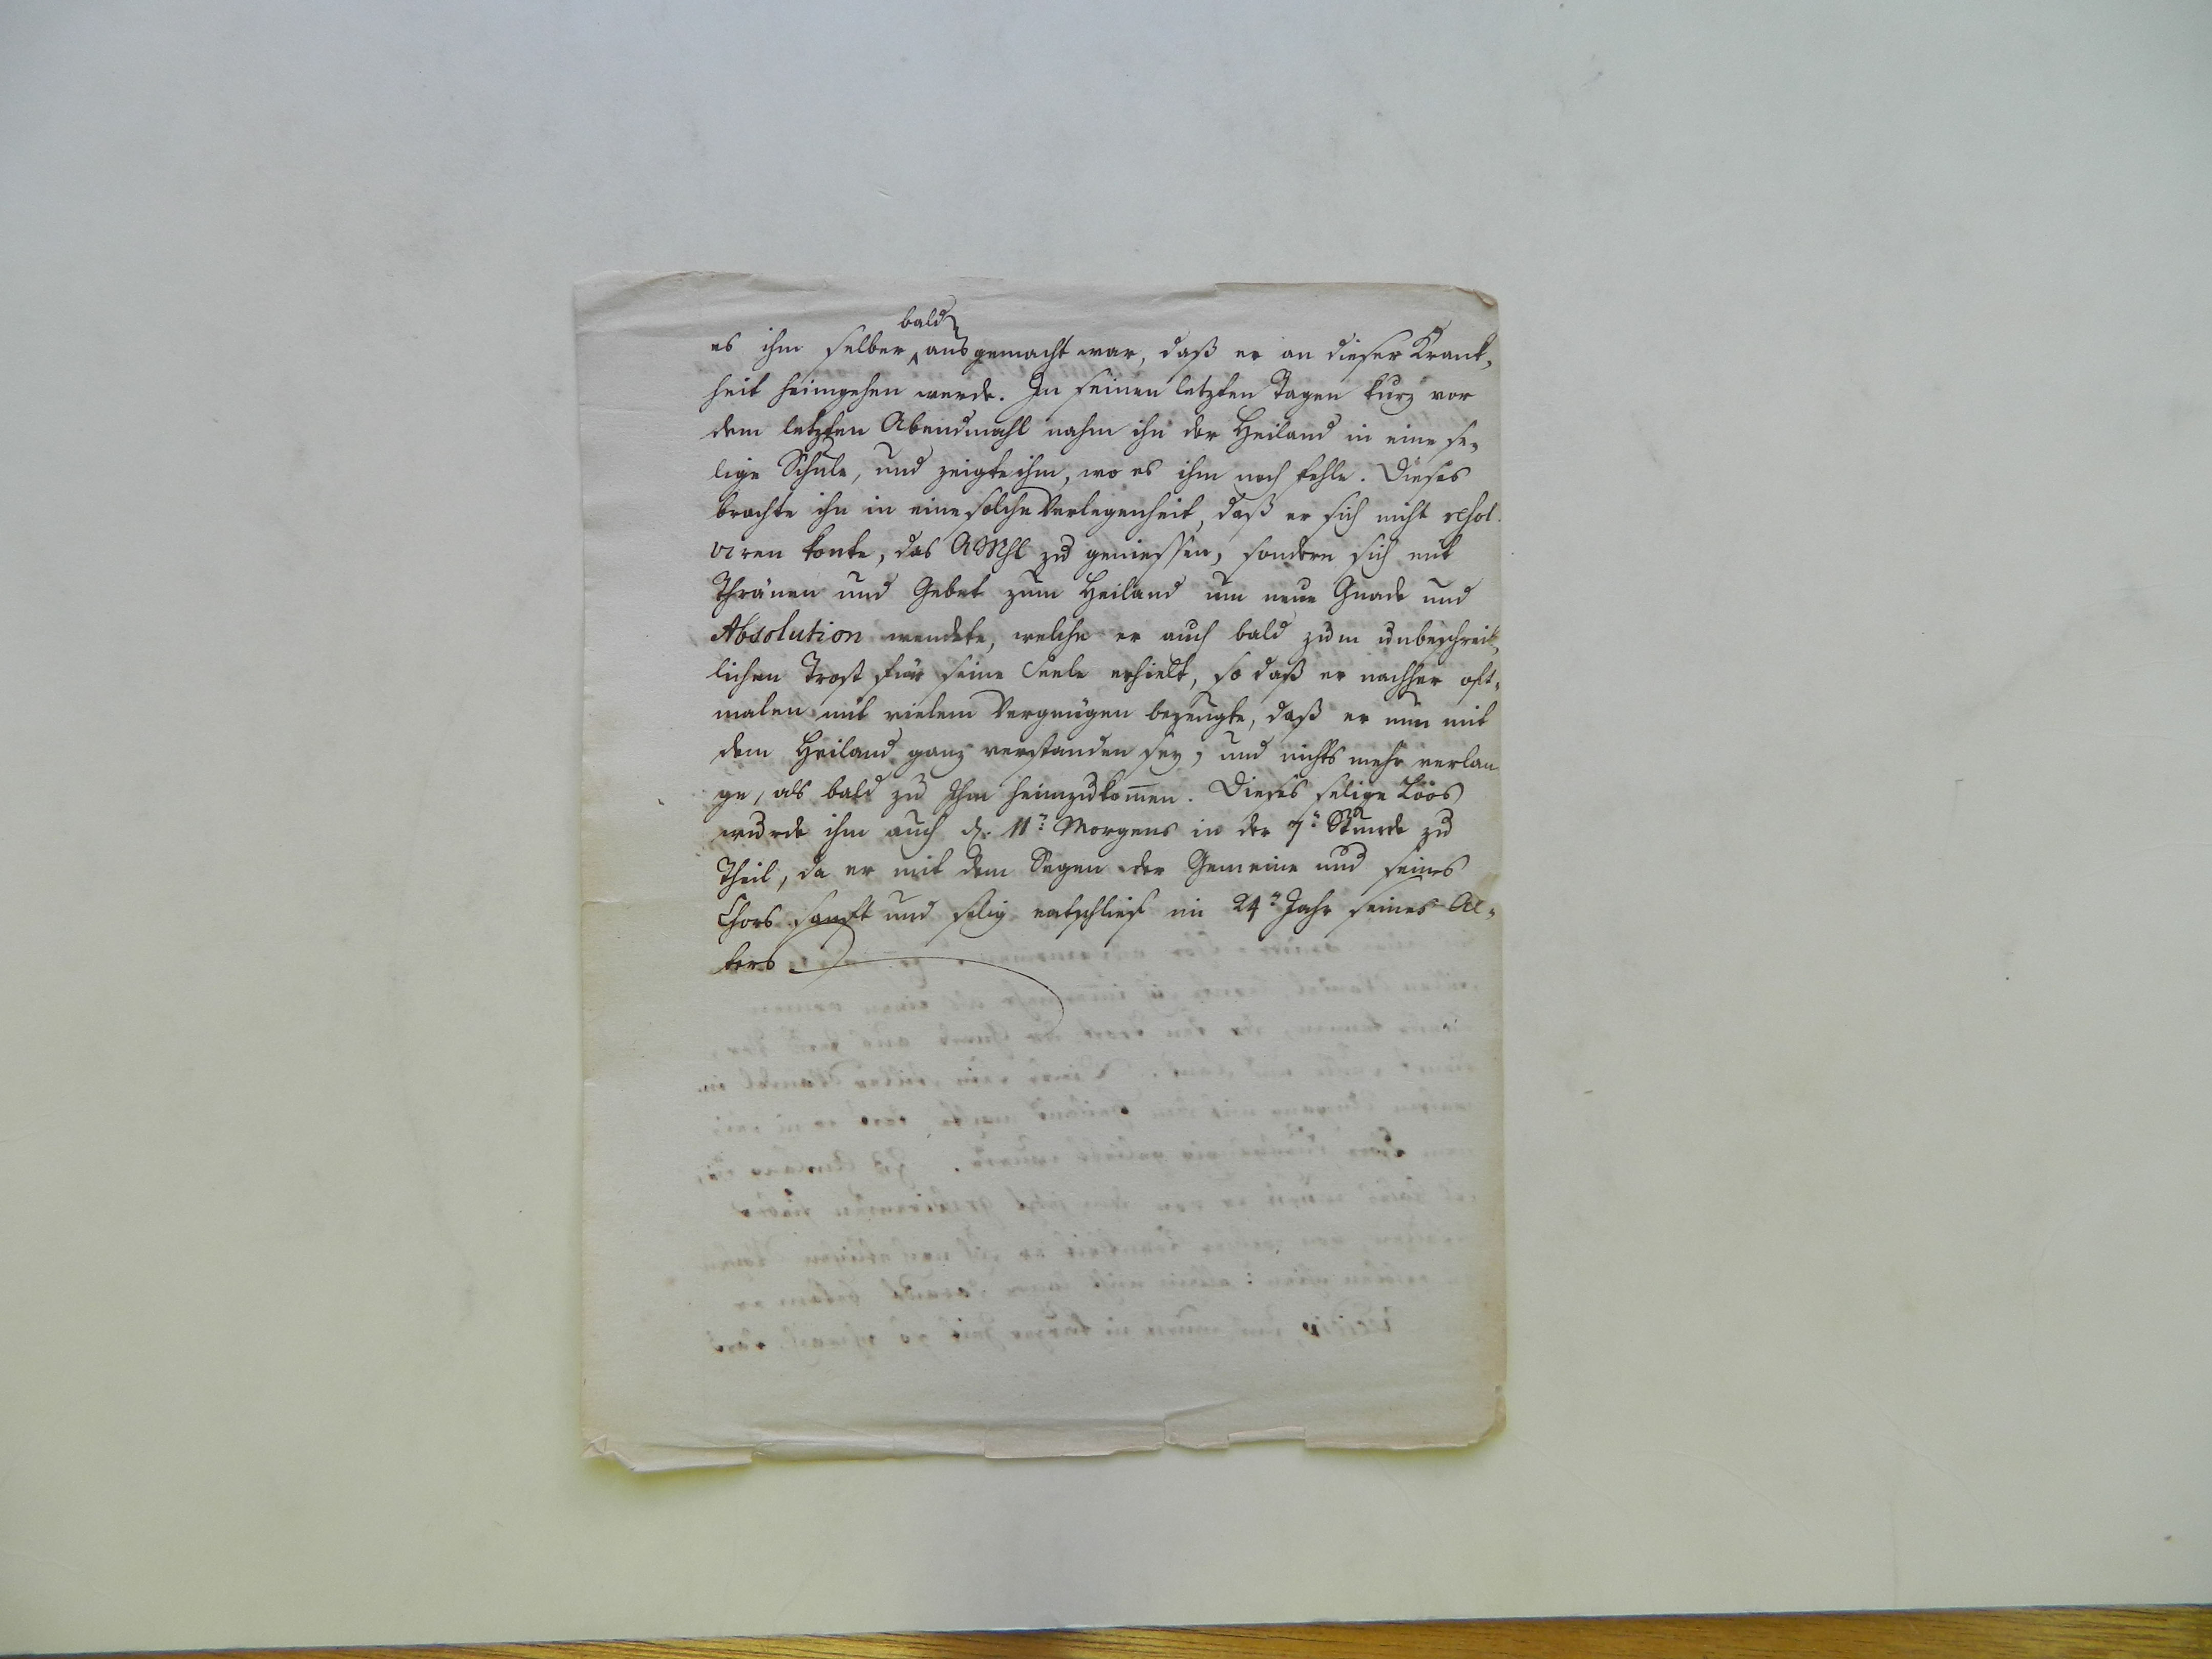 bald
es ihm selber ausgemacht war, daß er an dieser Krank-
heit heimgehen werde. In seinen letzten Tagen kurz vor
dem letzten Abendmahl nahm ihn der Heiland in eine se-
lige Schule, und zeigte ihm, wo es ihm noch fehle. Dieses
brachte ihn in eine solche Verlegenheit, daß er sich nicht resol-
viren konte, das AMhl zu geniessen, sondern sich mit
Thränen und Gebet zum Heiland um neue Gnade und
Absolution wendete, welche er auch bald zum unbeschreib-
lichen Trost für seine Seele erhielt, so daß er nachher oft-
malen mit vielem Vergnügen bezeugte, daß er nun mit
dem Heiland ganz verstanden sey, und nichts mehr verlan
ge, als bald zu Ihm heimzukom̄en. Dieses selige Loos
wurde ihm auch d. 11n Morgens in der 7n Stunde zu
Theil, da er mit dem Segen der Gemeine und seines
Chors sanft und selig entschlief im 24n Jahr seines Al-
ters.